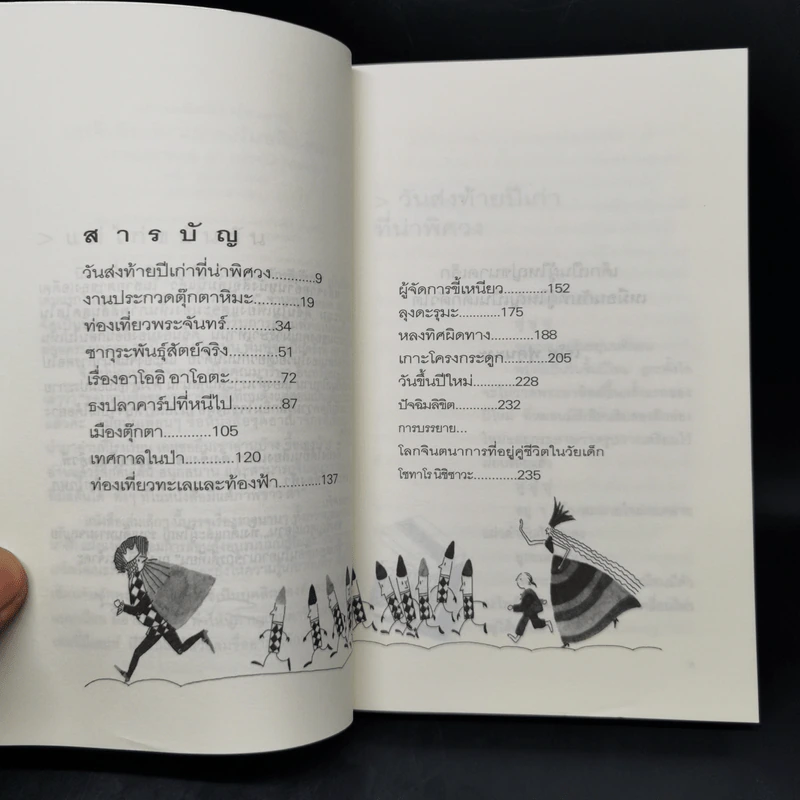 สารบัญ
วันส่งท้ายปีเก่าที่น่าพิศวง............9
งานประกวดตุ๊กตาหิมะ............19
ท่องเที่ยวพระจันทร์............34
ซากุระพันธุ์สัตย์จริง............51
เรื่องอาโออิ อาโอตะ............72
ธงปลาคาร์ปที่หนีไป............87
เมืองตุ๊กตา............105
เทศกาลในป่า............120
ท่องเที่ยวทะเลและท้องฟ้า............137
ผู้จัดการขี้เหนียว............152
ลุงดะรุมะ............175
หลงทิศผิดทาง............188
เกาะโครงกระดูก............205
วันขึ้นปีใหม่............228
ปัจฉิมลิขิต............232
การบรรยาย...
โลกจินตนาการที่อยู่คู่ชีวิตในวัยเด็ก
โชทาโร นิชิซาวะ............235
วันส่งท้ายปีเก่า
ที่น่าพิศวง